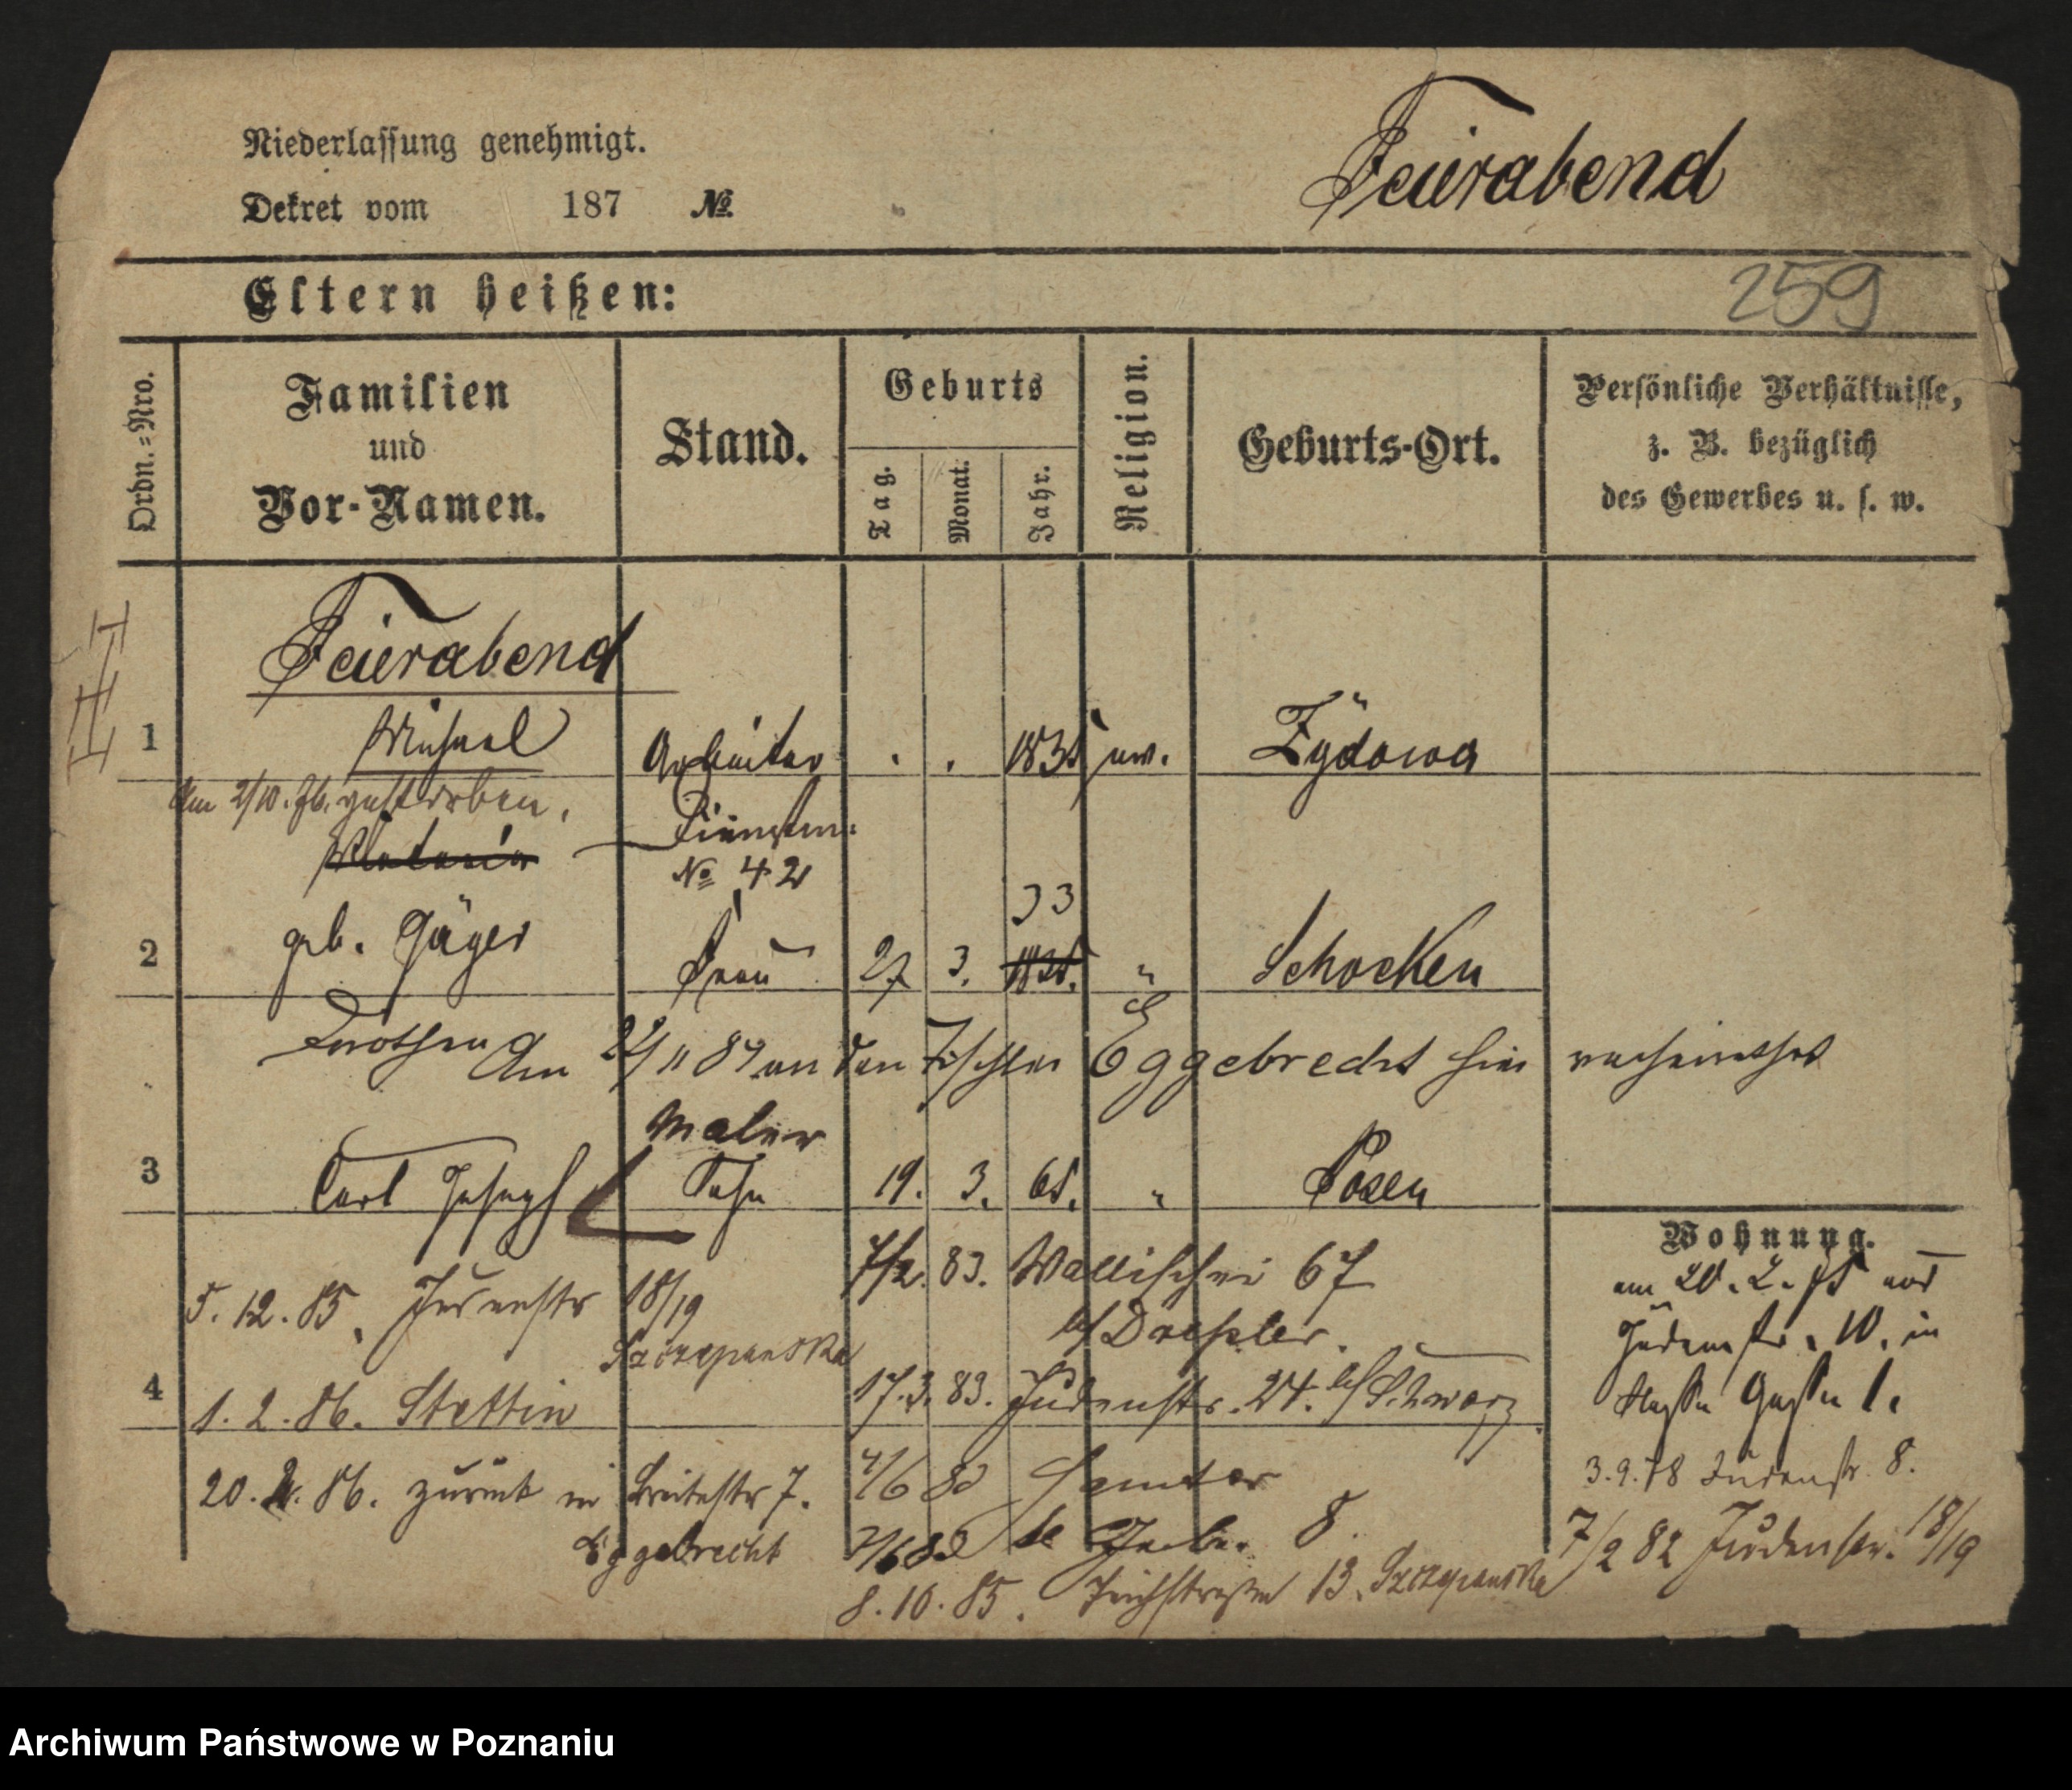 Niederlassung genehmigt.
Dekret vom 187 No.
Feierabend
Eltern heißen:
259
Ordn.-Nro.
Familien
und
Vor-Namen.
Stand.
Geburts
Tag.
Monat.
Jahr.
Religion.
Geburts-Ort.
Persönliche Verhältnisse,
z. B. bezüglich
des Gewerbes u. s. w.
Feierabend
1 Michael Arbeiter . . 1835 ev. Żydowo
Am 2/10. 76. gestorben.
No 42
33
2 geb. Jäger Frau 27 3. 1835. " Schocken
Dorothea Am 22/11 84 an den Tischler Eggebrecht hier verheirathet
Maler
3 Carl Joseph Sohn 19. 3. 65. " Posen
Wohnung.
7/2. 83. Wallischei 67
b/ Drexler.
am 20. 2. 75 von
Judenstr. 10. in
Gasse 1.
5. 12. 85. Judenstr 18/19
Szczepanska
4
17. 3. 83. Judenstr. 24. b/ Schwarz
1. 2. 86. Stettin
3. 9. 78 Judenstr. 8.
20. 2. 86. zurück in Breitestr 7.
Eggebrecht
4/6 83 Samter
7/6 83 8.
7/2 82 Judenstr. 18/19
8. 10. 85. Teichstraße 13. Szczepanska
Archiwum Państwowe w Poznaniu